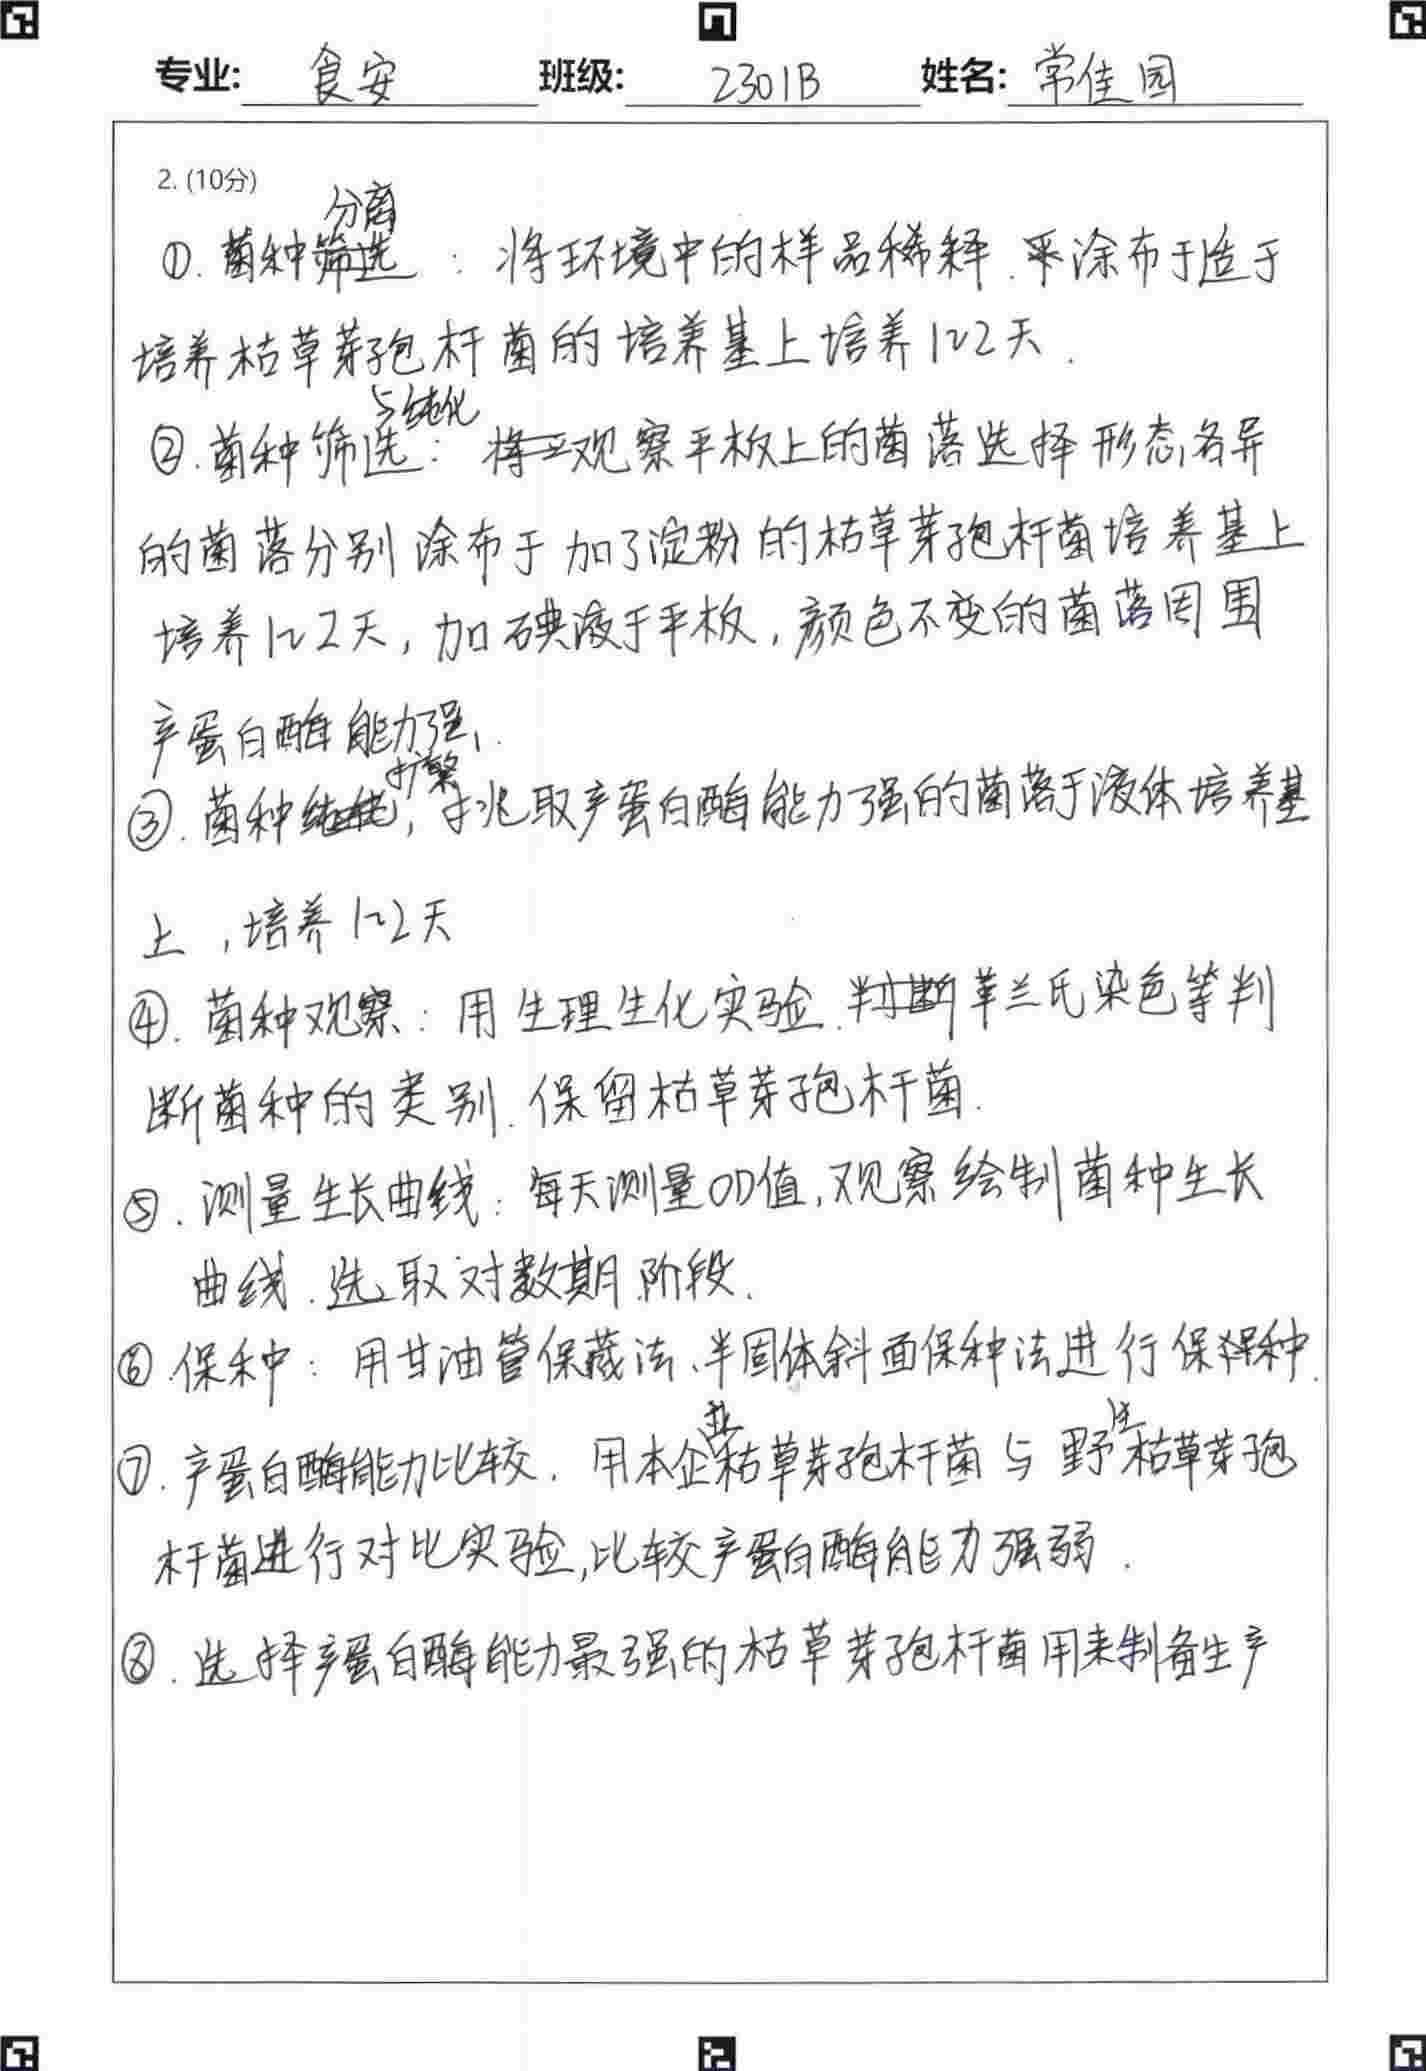 专业: 食安 班级: 2301B 姓名: 常佳园
2. (10分)
分离
①. 菌种筛选 : 将环境中的样品稀释. 平涂布于适于
培养枯草芽孢杆菌的培养基上培养1~2天.
与纯化
②. 菌种筛选: 将平观察平板上的菌落选择形态各异
的菌落分别涂布于加了淀粉的枯草芽孢杆菌培养基上
培养1~2天, 加碘液于平板, 颜色不变的菌落周围
产蛋白酶能力强.
扩繁
③. 菌种纯化, 挑取产蛋白酶能力强的菌落于液体培养基
上, 培养1~2天
④. 菌种观察: 用生理生化实验. 判断革兰氏染色等判
断菌种的类别. 保留枯草芽孢杆菌.
⑤. 测量生长曲线: 每天测量OD值, 观察绘制菌种生长
曲线. 选取对数期阶段.
⑥. 保种: 用甘油管保藏法、半固体斜面保种法进行保种.
业 生
⑦. 产蛋白酶能力比较. 用本企枯草芽孢杆菌与野枯草芽孢
杆菌进行对比实验, 比较产蛋白酶能力强弱.
⑧. 选择产蛋白酶能力最强的枯草芽孢杆菌用来制备生产